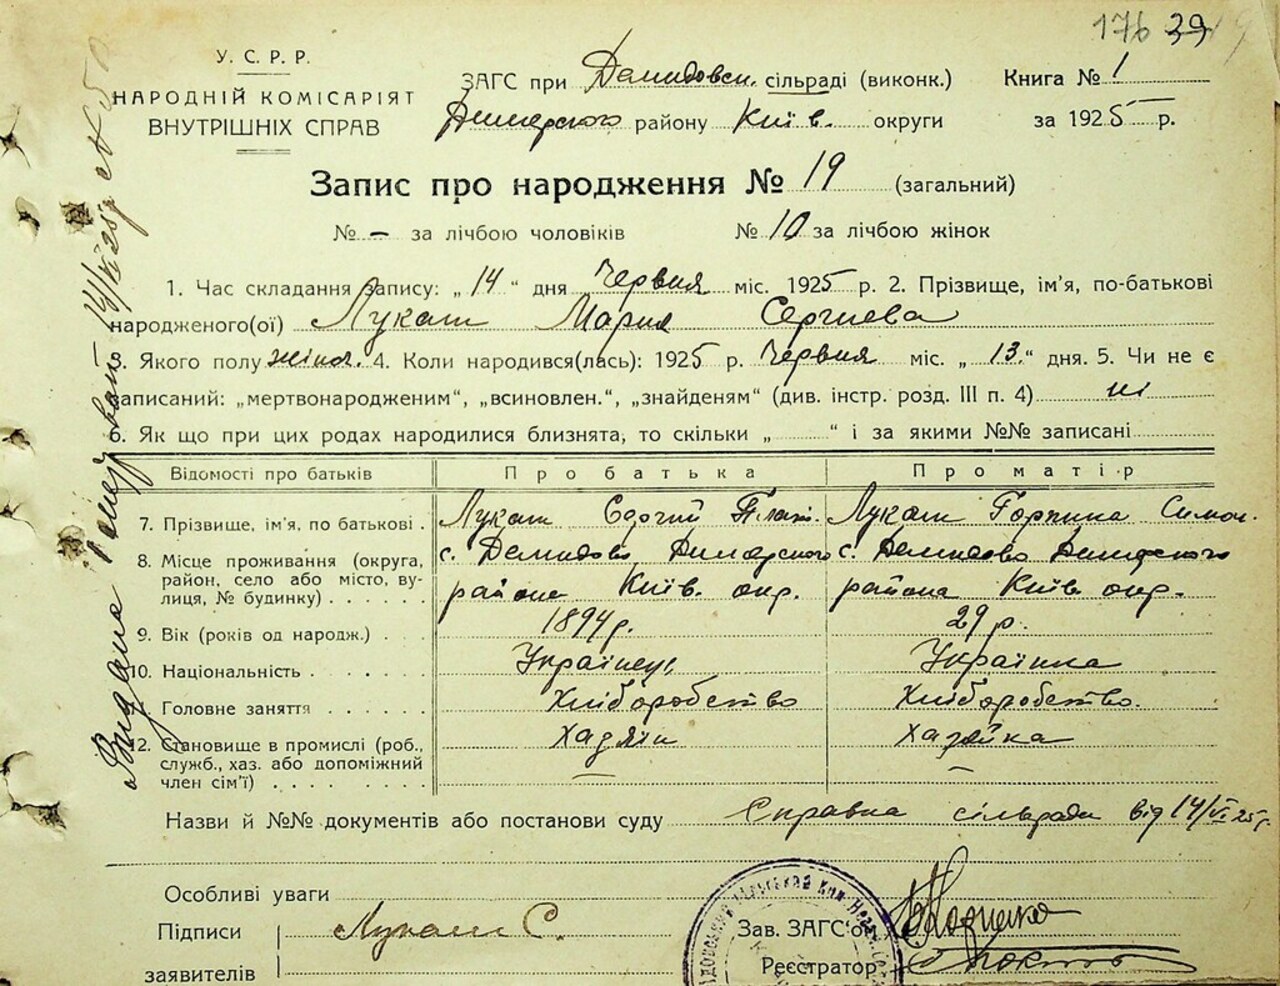 176 39
У. С. Р. Р.
НАРОДНІЙ КОМІСАРІЯТ
ВНУТРІШНІХ СПРАВ
ЗАГС при Демидовск. сільраді (виконк.)
Димерского району Київ. округи
Книга № 1
за 1925 р.
Запис про народження № 19 (загальний)
№ – за лічбою чоловіків № 10 за лічбою жінок
1. Час складання запису: „14" дня Червня міс. 1925 р. 2. Прізвище, ім'я, по-батькові
народженого(ої) Лукаш Мария Сергиева
3. Якого полу жіноч. 4. Коли народився(лась): 1925 р. Червня міс. „13." дня. 5. Чи не є
записаний: „мертвонародженим", „всиновлен.", „знайденям" (див. інстр. розд. III п. 4) ні
6. Як що при цих родах народилися близнята, то скільки „ " і за якими №№ записані
Відомості про батьків Про батька Про матір
7. Прізвище, ім'я, по батькові . Лукаш Сергий Плат. Лукаш Горпина Симон.
8. Місце проживання (округа, с. Демидово Димерского с. Демидово Димерского
район, село або місто, вулиця, № будинку) . . . . . района Київ. окр. района Київ. окр.
9. Вік (років од народж.) . . . 1894 р. 29 р.
10. Національність . . . . . . Українец, Українка
Головне заняття . . . . . . Хліборобство Хліборобство.
2. Становище в промислі (роб., Хазяїн Хазяйка
служб., хаз. або допоміжний – –
член сім'ї) . . . . . . . .
Назви й №№ документів або постанови суду Справка сільради від 14/VI 25 р.
Особливі уваги
Підписи Лукаш С.
заявителів
Зав. ЗАГС'ом
Реєстратор
Видана 14/VI 25 р.